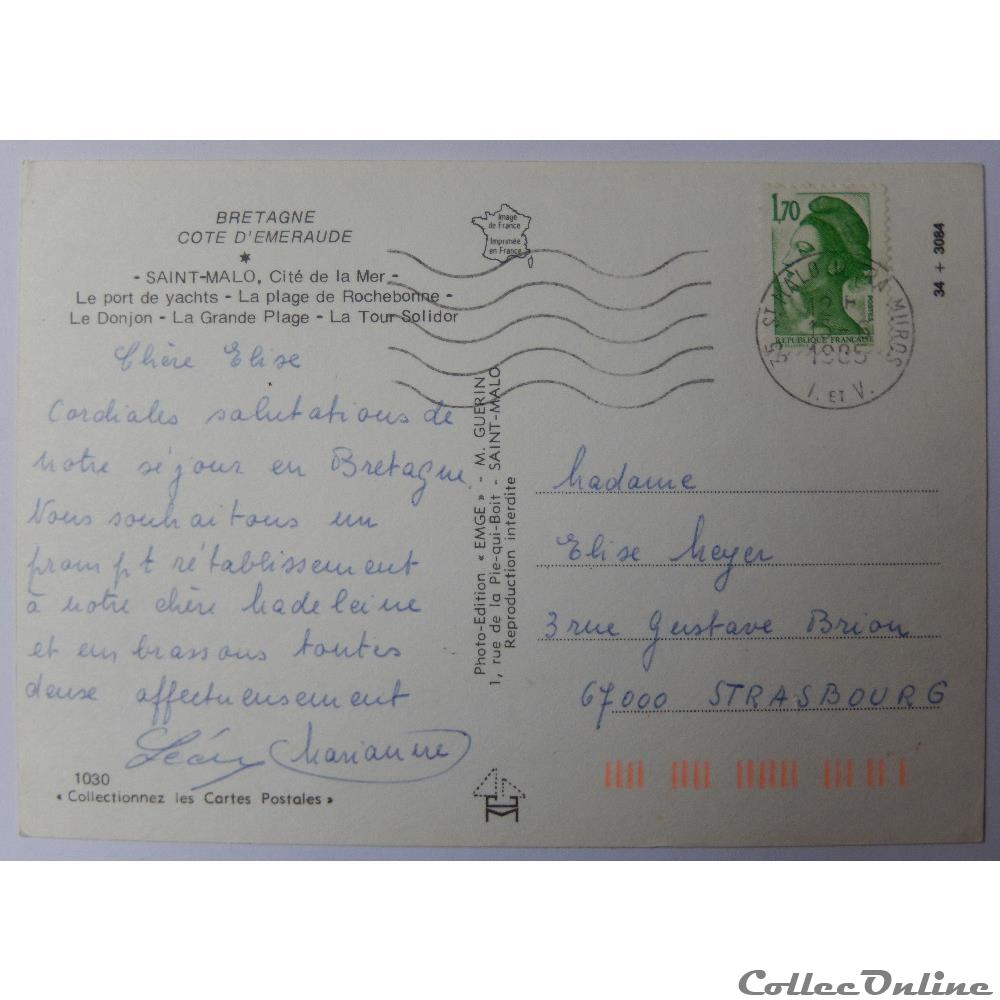 BRETAGNE
COTE D'EMERAUDE
- SAINT-MALO, Cité de la Mer -
Le port de yachts - La plage de Rochebonne -
Le Donjon - La Grande Plage - La Tour Solidor
Image
de France
Imprimée
en France
1,70
POSTES
REPUBLIQUE FRANÇAISE
35 ST MALO MUROS
12
1985
I. ET V.
34 + 3084
Chère Elise
Cordiales salutations de
notre séjour en Bretagne.
Nous souhaitons un
prompt rétablissement
à notre chère Madeleine
et embrassons toutes
deux affectueusement
Léon Marianne
1030
« Collectionnez les Cartes Postales »
Photo-Edition « EMGE » - M. GUERIN
1, rue de la Pie-qui-Boit - SAINT-MALO
Reproduction interdite
Madame
Elise Meyer
3 rue Gustave Brion
67000 STRASBOURG
CollecOnline